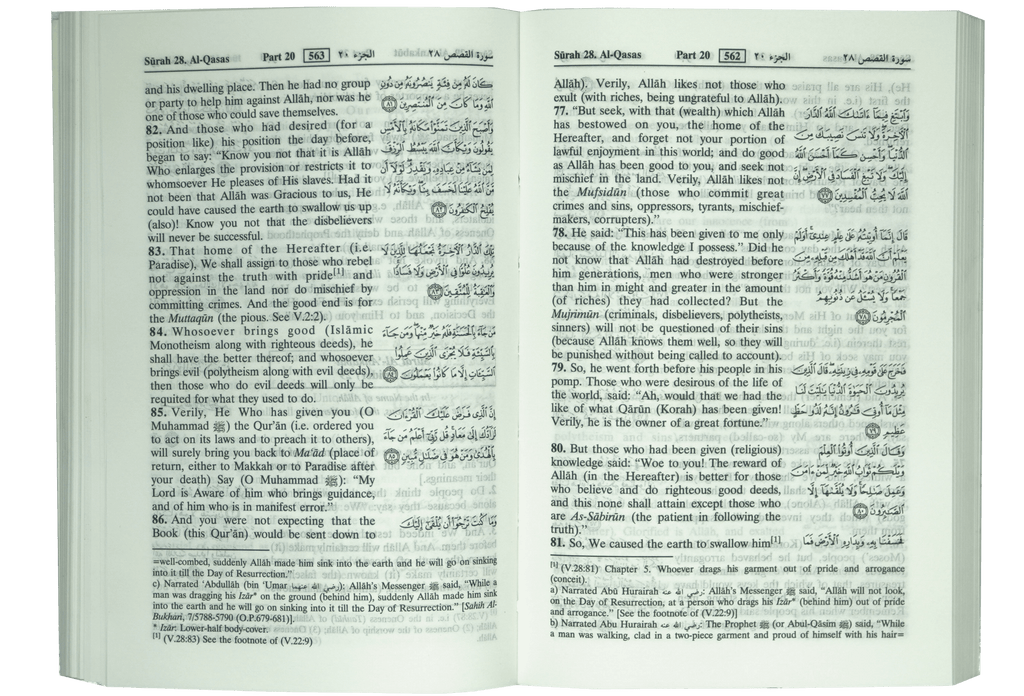 Sūrah 28. Al-Qasas Part 20 562 الجزء ٢٠ سورة القصص ٢٨
Allāh). Verily, Allāh likes not those who
exult (with riches, being ungrateful to Allāh).
77. “But seek, with that (wealth) which Allāh
has bestowed on you, the home of the
Hereafter, and forget not your portion of
lawful enjoyment in this world; and do good
as Allāh has been good to you, and seek not
mischief in the land. Verily, Allāh likes not
the Mufsidūn (those who commit great
crimes and sins, oppressors, tyrants, mischief-
makers, corrupters).”
78. He said: “This has been given to me only
because of the knowledge I possess.” Did he
not know that Allāh had destroyed before
him generations, men who were stronger
than him in might and greater in the amount
(of riches) they had collected? But the
Mujrimūn (criminals, disbelievers, polytheists,
sinners) will not be questioned of their sins
(because Allāh knows them well, so they will
be punished without being called to account).
79. So, he went forth before his people in his
pomp. Those who were desirous of the life of
the world, said: “Ah, would that we had the
like of what Qārūn (Korah) has been given!
Verily, he is the owner of a great fortune.”
80. But those who had been given (religious)
knowledge said: “Woe to you! The reward of
Allāh (in the Hereafter) is better for those
who believe and do righteous good deeds,
and this none shall attain except those who
are As-Sābirūn (the patient in following the
truth).”
81. So, We caused the earth to swallow him[1]
وَٱبْتَغِ فِيمَآ ءَاتَىٰكَ ٱللَّهُ ٱلدَّارَ
ٱلْـَٔاخِرَةَ وَلَا تَنسَ نَصِيبَكَ مِنَ
ٱلدُّنْيَا وَأَحْسِن كَمَآ أَحْسَنَ ٱللَّهُ
إِلَيْكَ وَلَا تَبْغِ ٱلْفَسَادَ فِى ٱلْأَرْضِ إِنَّ
ٱللَّهَ لَا يُحِبُّ ٱلْمُفْسِدِينَ ٧٧
قَالَ إِنَّمَآ أُوتِيتُهُۥ عَلَىٰ عِلْمٍ عِندِىٓ أَوَلَمْ
يَعْلَمْ أَنَّ ٱللَّهَ قَدْ أَهْلَكَ مِن قَبْلِهِۦ مِنَ
ٱلْقُرُونِ مَنْ هُوَ أَشَدُّ مِنْهُ قُوَّةً وَأَكْثَرُ
جَمْعًا وَلَا يُسْـَٔلُ عَن ذُنُوبِهِمُ
ٱلْمُجْرِمُونَ ٧٨
فَخَرَجَ عَلَىٰ قَوْمِهِۦ فِى زِينَتِهِۦ قَالَ ٱلَّذِينَ
يُرِيدُونَ ٱلْحَيَوٰةَ ٱلدُّنْيَا يَـٰلَيْتَ لَنَا
مِثْلَ مَآ أُوتِىَ قَـٰرُونُ إِنَّهُۥ لَذُو حَظٍّ
عَظِيمٍ ٧٩
وَقَالَ ٱلَّذِينَ أُوتُوا۟ ٱلْعِلْمَ
وَيْلَكُمْ ثَوَابُ ٱللَّهِ خَيْرٌ لِّمَنْ ءَامَنَ
وَعَمِلَ صَـٰلِحًا وَلَا يُلَقَّىٰهَآ إِلَّا
ٱلصَّـٰبِرُونَ ٨٠
فَخَسَفْنَا بِهِۦ وَبِدَارِهِ ٱلْأَرْضَ فَمَا
[1] (V.28:81) Chapter 5. Whoever drags his garment out of pride and arrogance
(conceit).
a) Narrated Abū Hurairah رضي الله عنه: Allāh’s Messenger ﷺ said, “Allāh will not look,
on the Day of Resurrection, at a person who drags his Izār* (behind him) out of pride
and arrogance.” [See the footnote of (V.22:9)]
b) Narrated Abu Hurairah رضي الله عنه: The Prophet ﷺ (or Abul-Qāsim ﷺ) said, “While
a man was walking, clad in a two-piece garment and proud of himself with his hair=
Sūrah 28. Al-Qasas Part 20 563 الجزء ٢٠ سورة القصص ٢٨
and his dwelling place. Then he had no group
or party to help him against Allāh, nor was he
one of those who could save themselves.
82. And those who had desired (for a
position like) his position the day before,
began to say: “Know you not that it is Allāh
Who enlarges the provision or restricts it to
whomsoever He pleases of His slaves. Had it
not been that Allāh was Gracious to us, He
could have caused the earth to swallow us up
(also)! Know you not that the disbelievers
will never be successful.
83. That home of the Hereafter (i.e.
Paradise), We shall assign to those who rebel
not against the truth with pride[1] and
oppression in the land nor do mischief by
committing crimes. And the good end is for
the Muttaqūn (the pious. See V.2:2).
84. Whosoever brings good (Islāmic
Monotheism along with righteous deeds), he
shall have the better thereof; and whosoever
brings evil (polytheism along with evil deeds),
then those who do evil deeds will only be
requited for what they used to do.
85. Verily, He Who has given you (O
Muhammad ﷺ) the Qur’ān (i.e. ordered you
to act on its laws and to preach it to others),
will surely bring you back to Ma‘ād (place of
return, either to Makkah or to Paradise after
your death) Say (O Muhammad ﷺ): “My
Lord is Aware of him who brings guidance,
and of him who is in manifest error.”
86. And you were not expecting that the
Book (this Qur’ān) would be sent down to
كَانَ لَهُۥ مِن فِئَةٍ يَنصُرُونَهُۥ مِن دُونِ
ٱللَّهِ وَمَا كَانَ مِنَ ٱلْمُنتَصِرِينَ ٨١
وَأَصْبَحَ ٱلَّذِينَ تَمَنَّوْا۟ مَكَانَهُۥ بِٱلْأَمْسِ
يَقُولُونَ وَيْكَأَنَّ ٱللَّهَ يَبْسُطُ ٱلرِّزْقَ
لِمَن يَشَآءُ مِنْ عِبَادِهِۦ وَيَقْدِرُ لَوْلَآ أَن
مَّنَّ ٱللَّهُ عَلَيْنَا لَخَسَفَ بِنَا وَيْكَأَنَّهُۥ لَا
يُفْلِحُ ٱلْكَـٰفِرُونَ ٨٢
تِلْكَ ٱلدَّارُ ٱلْـَٔاخِرَةُ نَجْعَلُهَا لِلَّذِينَ لَا
يُرِيدُونَ عُلُوًّا فِى ٱلْأَرْضِ وَلَا فَسَادًا
وَٱلْعَـٰقِبَةُ لِلْمُتَّقِينَ ٨٣
مَن جَآءَ بِٱلْحَسَنَةِ فَلَهُۥ خَيْرٌ مِّنْهَا وَمَن جَآءَ
بِٱلسَّيِّئَةِ فَلَا يُجْزَى ٱلَّذِينَ عَمِلُوا۟
ٱلسَّيِّـَٔاتِ إِلَّا مَا كَانُوا۟ يَعْمَلُونَ ٨٤
إِنَّ ٱلَّذِى فَرَضَ عَلَيْكَ ٱلْقُرْءَانَ
لَرَآدُّكَ إِلَىٰ مَعَادٍ قُل رَّبِّىٓ أَعْلَمُ مَن جَآءَ
بِٱلْهُدَىٰ وَمَنْ هُوَ فِى ضَلَـٰلٍ مُّبِينٍ ٨٥
وَمَا كُنتَ تَرْجُوٓا۟ أَن يُلْقَىٰٓ إِلَيْكَ
=well-combed, suddenly Allāh made him sink into the earth and he will go on sinking
into it till the Day of Resurrection.”
c) Narrated ‘Abdullāh (bin ‘Umar رضي الله عنهما): Allāh’s Messenger ﷺ said, “While a
man was dragging his Izār* on the ground (behind him), suddenly Allāh made him sink
into the earth and he will go on sinking into it till the Day of Resurrection.” [Sahih Al-
Bukhāri, 7/5788-5790 (O.P.679-681)].
* Izār: Lower-half body-cover.
[1] (V.28:83) See the footnote of (V.22:9)